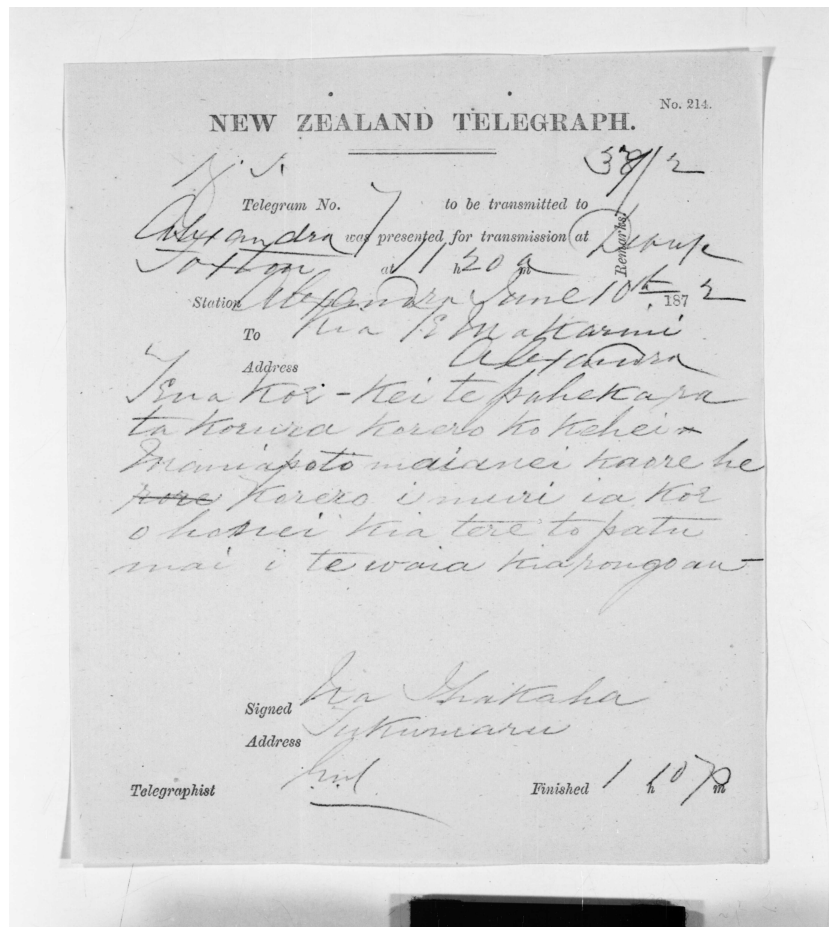 No. 214.
NEW ZEALAND TELEGRAPH.
38/2
Telegram No. 7 to be transmitted to
Alexandra was presented for transmission at
Foxton at 11 h 20 a m
Remarks
Station Alexandra June 10th 1872
To Kia E Makarini
Address Alexandra
Tena koe - kei te pahekara
ta korua korero ko kehei
Maniapoto maianei kaore he
rore korero i muri ia koe
o honei kia tere to patu
mai i te waia kia rongo au
Signed Na Ihakaha
Address Tukumaru
Telegraphist
Finished 1 h 107 p m